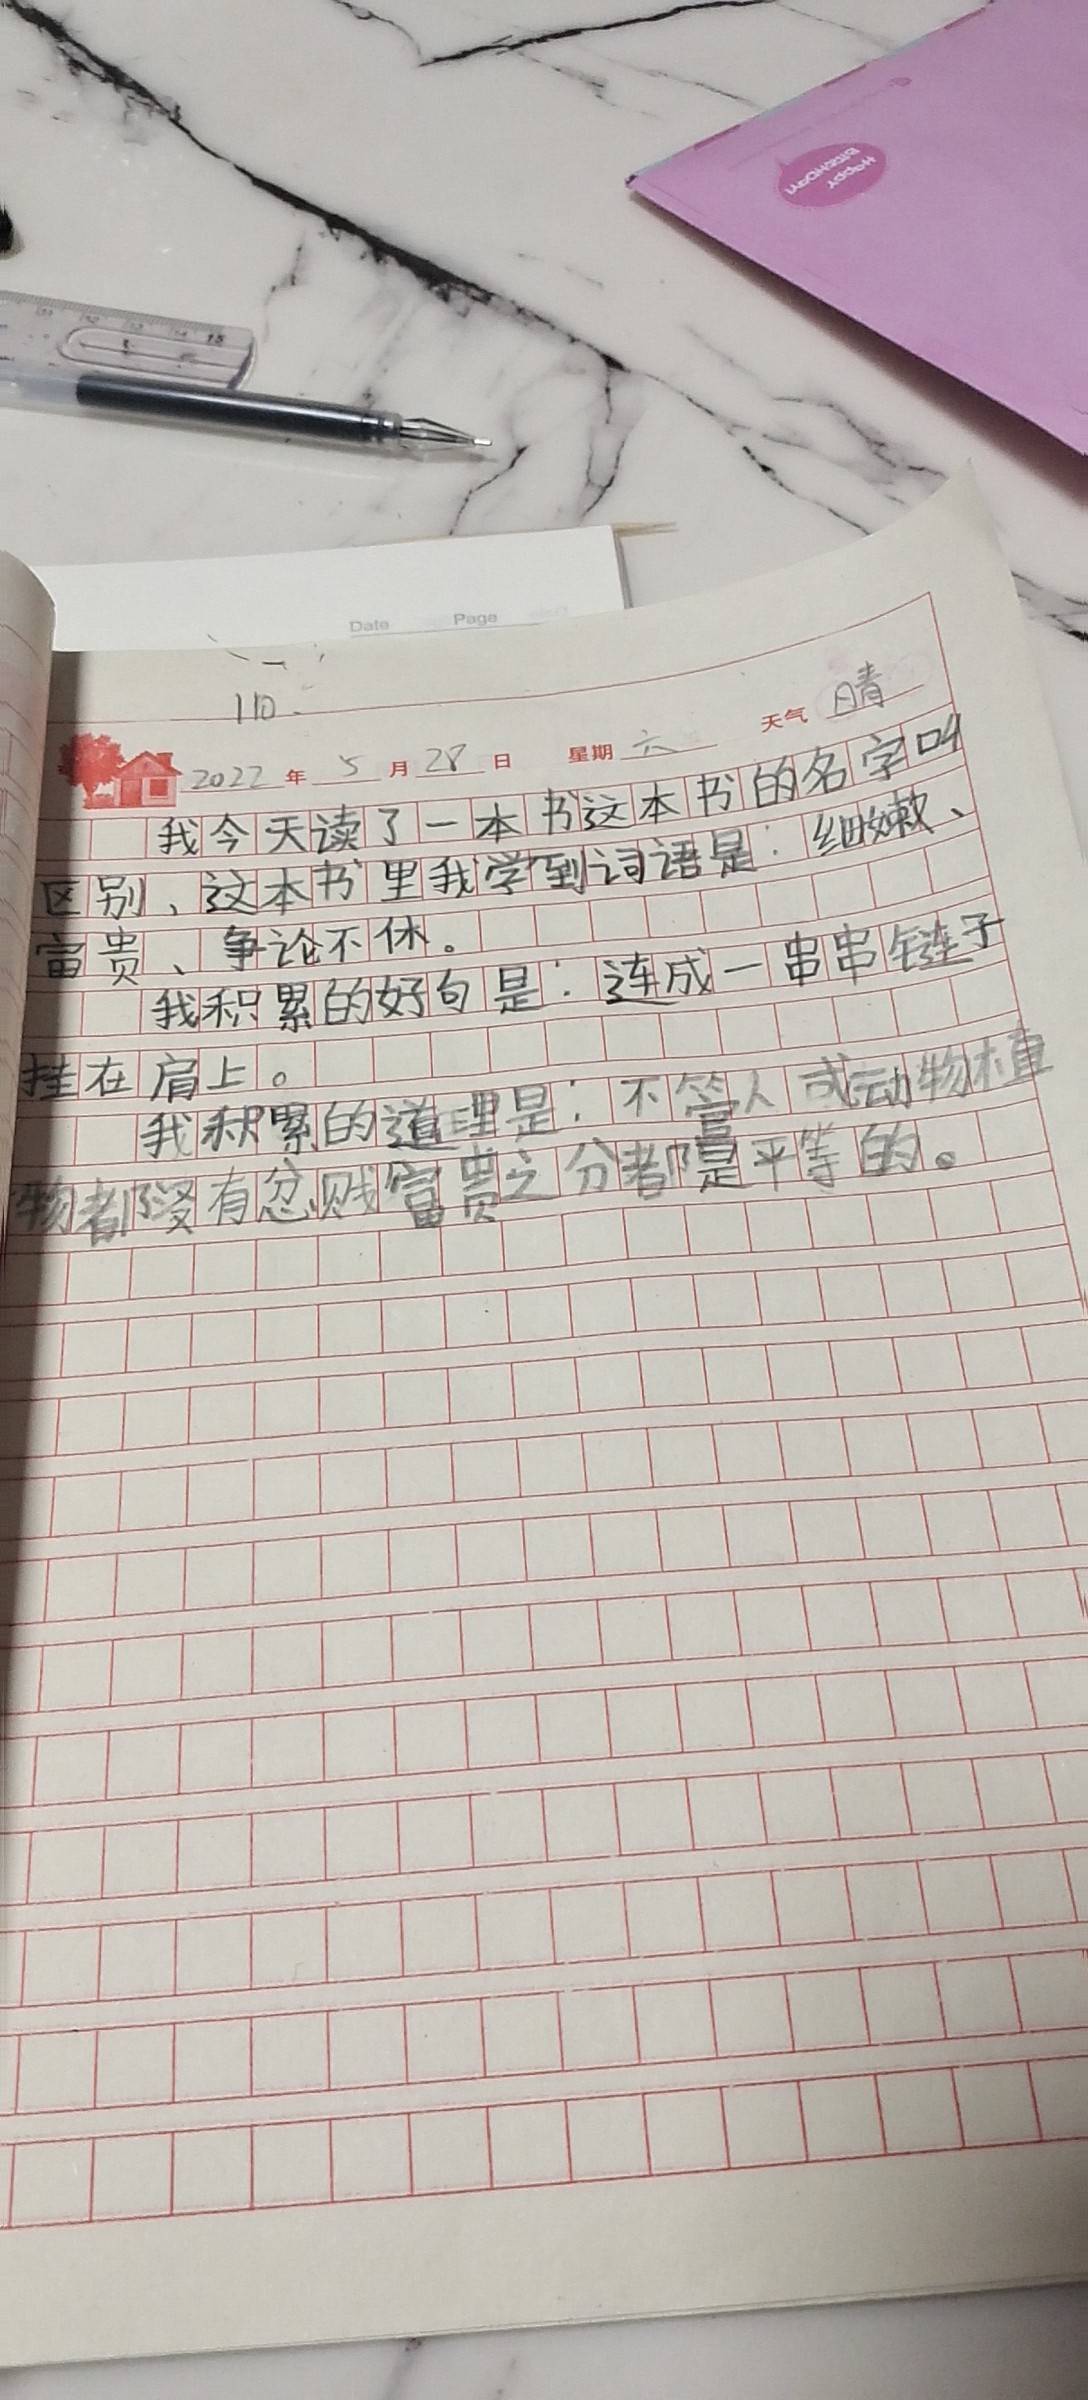 Happy
BIRTHDAY
Date Page
110
2022年 5月28日 星期六 天气 晴
我今天读了一本书这本书的名字叫
区别、这本书里我学到词语是:细嫩、
富贵、争论不休。
我积累的好句是:连成一串串链子
挂在肩上。
我积累的道理是:不管人或动物植
物都没有贫贱富贵之分都是平等的。